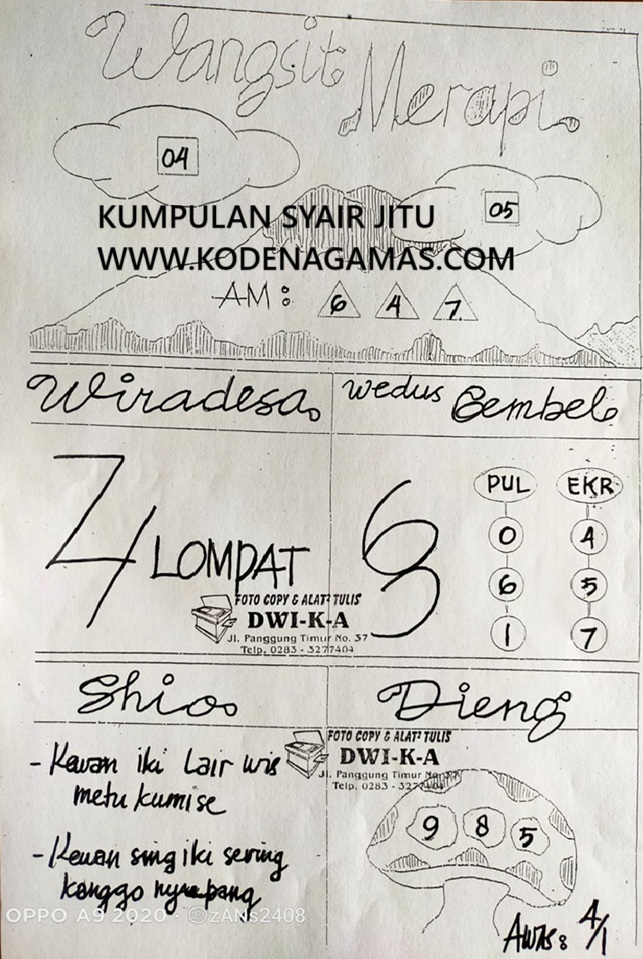 Wangsit Merapi
04
05
KUMPULAN SYAIR JITU
WWW.KODENAGAMAS.COM
AM: 6 4 7
Wiradesa
Wedus Gembel
LOMPAT
PUL EKR
0 4
6 5
1 7
FOTO COPY & ALAT² TULIS
DWI-K-A
Jl. Panggung Timur No. 37
Telp. 0283 - 3277404
Shio
Dieng
- Kewan iki Lair wis
metu kumise
- Kewan sing iki sering
kanggo
FOTO COPY & ALAT² TULIS
DWI-K-A
Jl. Panggung Timur No. 37
Telp. 0283 - 3277404
9 8 5
AWAS: 4/1
OPPO A9 2020 · ©zANs2408